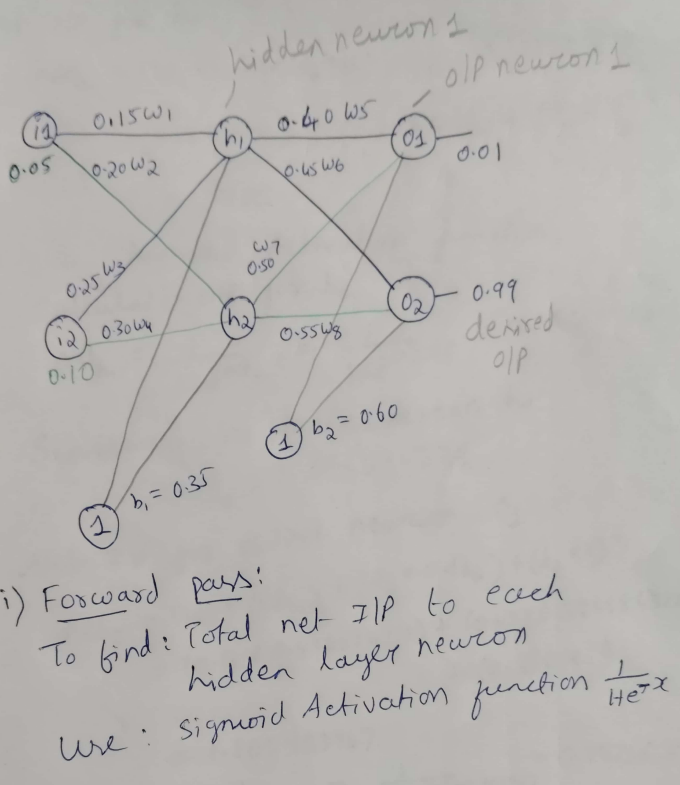 hidden neuron 1
O/P neuron 1
i1 0.15 w1 h1 0.40 w5 O1
0.05 0.20 w2 0.45 w6 0.01
w7
0.25 w3 0.50
i2 0.30 w4 h2 0.55 w8 O2 0.99
0.10 desired
O/P
1 b2 = 0.60
b1 = 0.35
1
i) Forward pass:
To find: Total net I/P to each
hidden layer neuron
Use: Sigmoid Activation function 1/1+e^-x